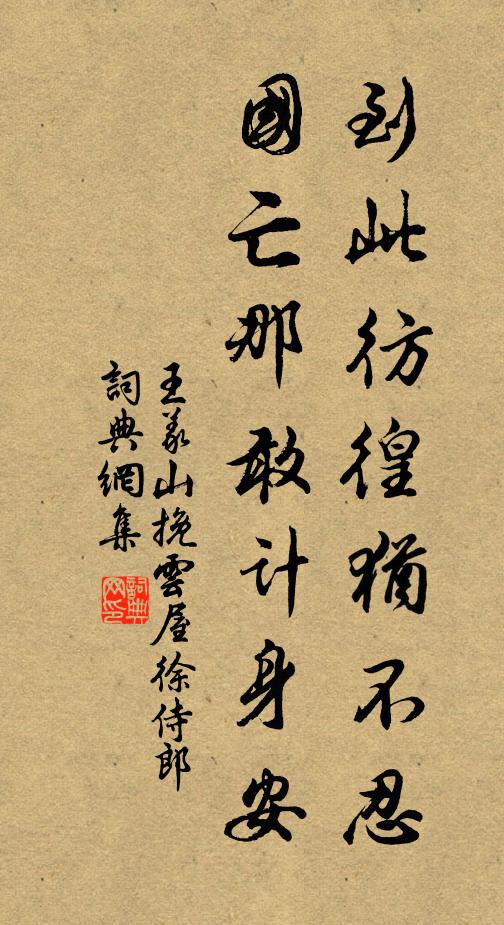 到此彷徨猶不忍
國亡那敢计身安
王義山挽雲屋徐侍郎
詞典網集
詞典网印